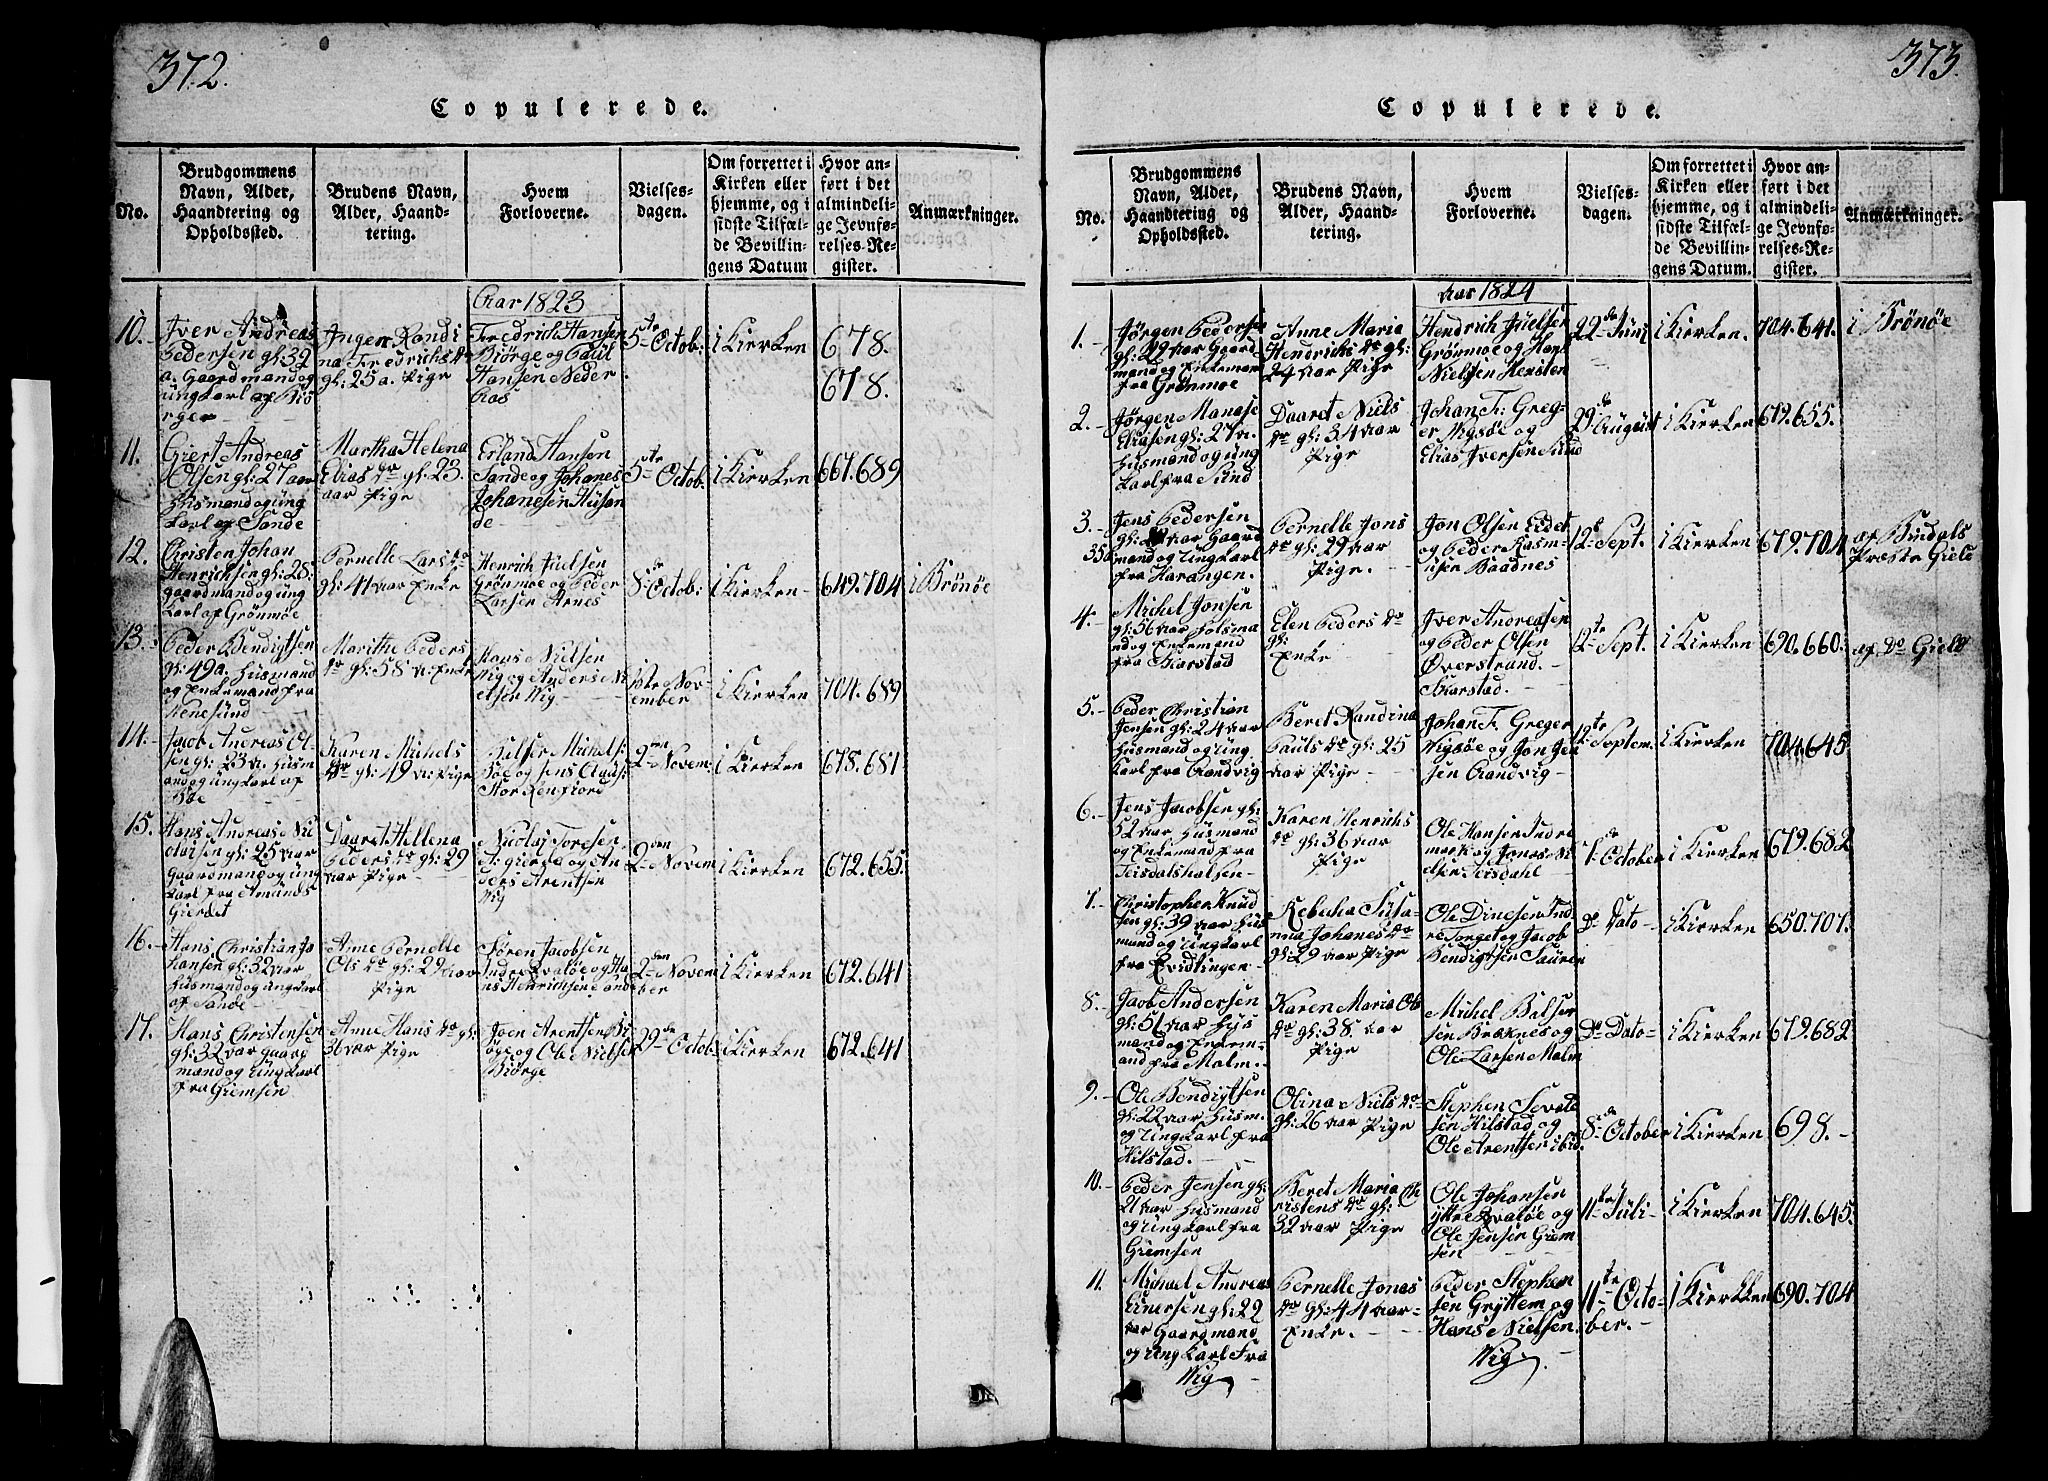 372.
Copulerede.
No.
Brudgommens
Navn, Alder,
Haandtering og
Opholdssted.
Brudens Navn,
Alder, Haand-
tering.
Hvem
Forloverne.
Vielses-
dagen.
Om forrettet i
Kirken eller
hjemme, og i
sidste Tilfæl-
de Bevillin-
gens Datum
Hvor an-
ført i det
almindeli-
ge Jevnfø-
relses-Re-
gister.
Anmærkninger.
Aar 1823
10.
Iver Andreas
Pedersen gl: 32
a. Gaardmand og
ungkarl af Biö
rge
Inger Randi
na Fredrichs dr
gl: 25 a. Pige
Fredrich Hansen
Biörge og Poul
Hansen Neder
Aas
5te Octob:
i Kierken
678.
678.
11.
Giert Andreas
Olsen gl: 27 aar
Huusmand og ung
karl af Sande
Martha Helena
Elias dr gl: 23
aar Pige
Erland Hansen
Sande og Johanes
Johanesen Husan
de
5te Octob.
i Kierken
667.689
12.
Christen Johan
Henrichsen gl: 28:
gaardmand og ung
karl af Grönmöe
Pernelle Lars dr
gl: 41 aar Enke
Henrich Juelsen
Grönmoe og Peder
Larsen Arnes
8de Octob:
i Kierken
649.704
i Brönöe
13.
Peder Bendigtsen
gl: 49 a. Husmand
og Enkemand fra
Nenesund
Marithe Peders
dr gl: 58 a. Enke
Hans Nielsen
Wig og Anders Ni
elsen Wig
10te Nov-
ember
i Kierken
704.689
14.
Jacob Andreas Ol-
sen gl: 23 a. Husm
and og ungkarl af
Böe
Karen Michels
dr gl: 49 a: Pige
Böe og Jens Clads:
Stor Kenfiord
2den Novem:
i Kierken
678.681
15.
Hans Andreas Ni
olaisen gl: 25 aar
gaardmand og ung
karl fra Amunds
Gierdet
Daaret Hellena
Peders dr gl: 29
aar Pige
Nicolai Toresen
A: gierde og An
ders Arentsen
Wig
2den Novem
i Kierken
672.655.
16.
Hans Christian Jo
hansen gl: 32 aar
Husmand og ungkarl
af Sande
Anne Pernelle
Ols dr gl: 29 aar
Pige
Sören Jacobsen
Indre Qvalöe og Ha
ns Henrichsen Sande
2den Novem
ber
i Kierken
672.641
17.
Hans Christensen
gl: 32 aar gaard
mand og ungkarl
fra Gremsen
Anne Hans dr gl:
36 aar Pige
Joen Arentsen Bi
örge og Ole Nielsen
Biörge
29de Octob
i Kierken
672.641
373.
Copulerede.
No.
Brudgommens
Navn, Alder,
Haandtering og
Opholdssted.
Brudens Navn,
Alder, Haand-
tering.
Hvem
Forloverne.
Vielses-
dagen.
Om forrettet i
Kirken eller
hjemme, og i
sidste Tilfæl-
de Bevillin-
gens Datum.
Hvor an-
ført i det
almindeli-
ge Jevnfø-
relses-Re-
gister.
Anmærkninger.
Aar 1824
1.
Jörgen Pedersen
gl: 29 aar Gaard
mand og Enkeman
fra Grönmoe
Anne Maria
Hendrichs dr gl:
24 aar Pige
Hendrich Juelsen
Grönmoe og Hans
Nielsen Horsten
22de Juni
i Kierken.
704.641.
i Brönöe
2.
Jörgen Manase
Eliasen gl: 27 a.
Husmand og ung
karl fra Sund
Daaret Niels
dr gl: 34 aar
Pige
Johan F: Greg-
er Wigsöe og
Elias Iversen Sund
29de August
i Kierken
672.655.
3.
Jens Pedersen
gl: aar Gaard
35a
mand og Ungkarl
fra Harangen.
Pernelle Jons
dr gl: 29 aar
Pige.
Jon Olsen Eidet
og Peder Rasm-
usen Baadnes
12te Sept.
i Kierken
679.704
af Bindals
Præste Gield
4.
Michel Jonsen
gl: 56 aar Holsma
nd og Enkemand
fra Skarstad
Elen Peders dr
gl:
Enke
Iver Andreasen
og Peder Olsen
Överstrand.
Skarstad.
12te Sept.
i Kierken
690.660.
af do Gield
5.
Peder Christian
Jensen gl: 24 aar
Husmand og ung
karl fra Aandvig
Beret Randina
Pauls dr gl: 25
aar Pige
Johan F. Greger
Wigsöe og Jon Jen
sen Aandvig
12te Septem.
i Kierken
704.645
6.
Jens Jacobsen gl:
52 aar Husmand
og Enkemand fra
Teisdalshalsen
Karen Henrichs
dr gl: 36 aar
Pige
Ole Hansen Indre
moek og Jonas Ni
elsen Teisdahl
7de October
i Kierken
679.682
7.
Christopher Knud
sen gl: 39 aar Hus
mand og Ungkarl
fra Evidtingen
Rebecha Susa-
nna Johanes dr
gl: 29 aar Pige
Ole Dinesen Ind
re Torget og Jacob
Bendigtsen Sauren
do Dato
i Kierken
650.707.
8.
Jacob Andersen
gl: 51 aar Hus
mand og Enkem-
and fra Malm.
Karen Maria Ols
dr gl: 38 aar
Pige
Michel Balser
sen Bræknes og
Ole Larsen Malm
do Dato
i Kierken
679.682
9.
Ole Bendigtsen
gl: 22 aar Husm.
og ungkarl fra
Hilstad.
Olina Niels dr
gl: 26 aar Pige
Stephen Sevald
sen Hilstad og
Ole Arentsen ibid.
8de October
i Kierken
698.
10.
Peder Jensen gl:
21 aar Husmand
og ungkarl fra
Gremsen
Beret Maria Ch
ristens dr gl:
32 aar Pige
Ole Johansen
ytre Qvalöe og
Ole Jensen Grem
sen
11te Juli
i Kierken
704.645.
11.
Michael Andreas
Einersen gl: 22
aar Gaardmand
og ungkarl fra
Wig
Pernelle Jonas
dr gl: 44 aar
Enke.
Peder Stephen
sen Gryttem og
Hans Nielsen
Wig
11te Octo-
ber.
i Kierkken
690.704